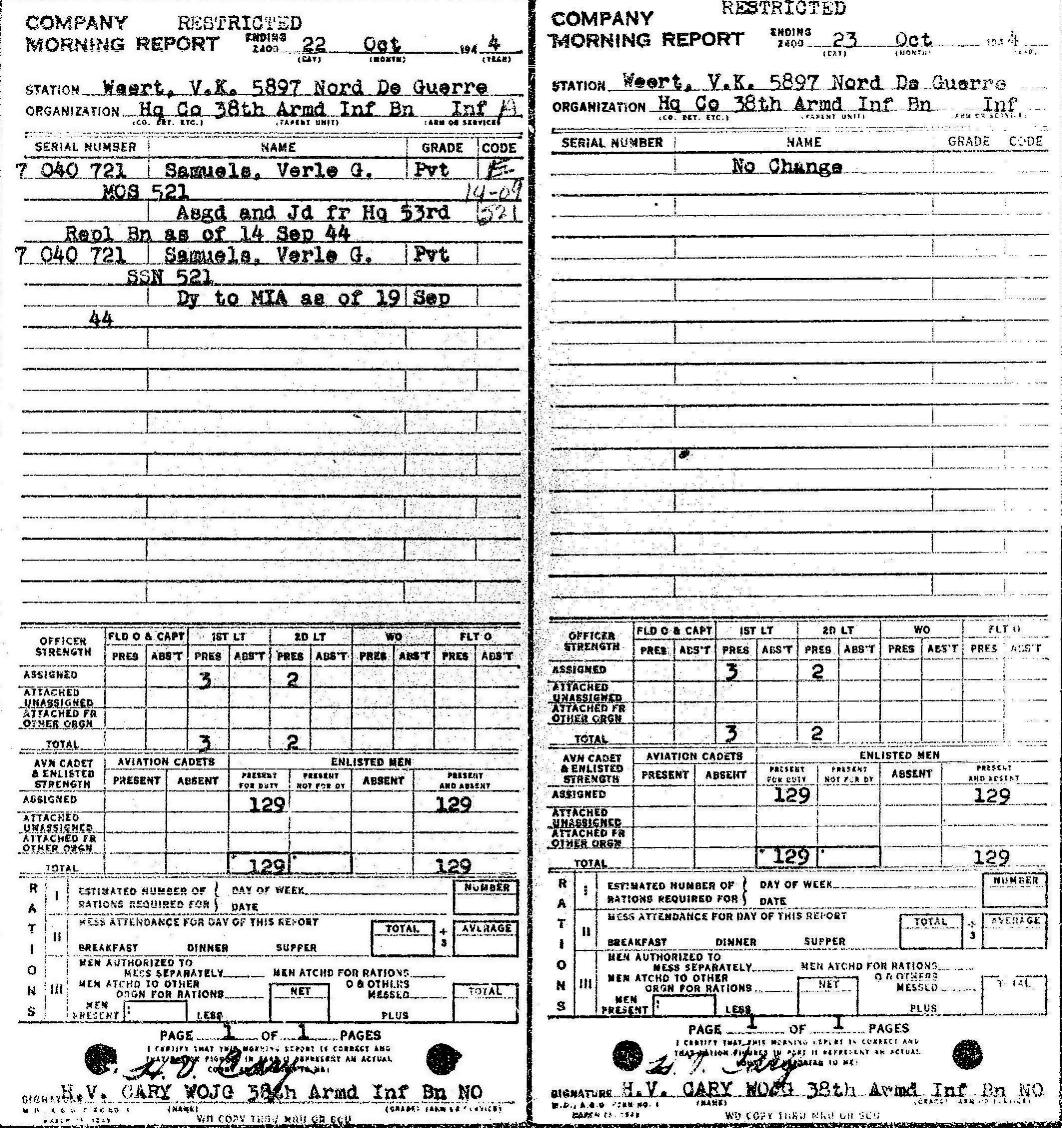 COMPANY RESTRICTED
MORNING REPORT ENDING 2400 22 Oct 194 4
(DAY) (MONTH) (YEAR)
STATION Weert, V.K. 5897 Nord De Guerre
ORGANIZATION Hq Co 38th Armd Inf Bn Inf
(CO. DET. ETC.) (PARENT UNIT) (ARM OR SERVICE)
SERIAL NUMBER NAME GRADE CODE
7 040 721 Samuels, Verle G. Pvt E
MOS 521 14-09
Asgd and Jd fr Hq 53rd 521
Repl Bn as of 14 Sep 44
7 040 721 Samuels, Verle G. Pvt
SSN 521
Dy to MIA as of 19 Sep
44
OFFICER STRENGTH FLD O & CAPT 1ST LT 2D LT WO FLT O
PRES ABS'T PRES ABS'T PRES ABS'T PRES ABS'T PRES ABS'T
ASSIGNED 3 2
ATTACHED UNASSIGNED
ATTACHED FR OTHER ORGN
TOTAL 3 2
AVN CADET & ENLISTED STRENGTH AVIATION CADETS ENLISTED MEN
PRESENT ABSENT PRESENT FOR DUTY PRESENT NOT FOR DY ABSENT PRESENT AND ABSENT
ASSIGNED 129 129
ATTACHED UNASSIGNED
ATTACHED FR OTHER ORGN
TOTAL 129 129
RATIONS
I ESTIMATED NUMBER OF RATIONS REQUIRED FOR DAY OF WEEK DATE NUMBER
II MESS ATTENDANCE FOR DAY OF THIS REPORT TOTAL ÷ 3 AVERAGE
BREAKFAST DINNER SUPPER
III MEN AUTHORIZED TO MESS SEPARATELY MEN ATCHD FOR RATIONS
MEN ATCHD TO OTHER ORGN FOR RATIONS NET O & OTHERS MESSED TOTAL
MEN PRESENT LESS PLUS
PAGE 1 OF 1 PAGES
I CERTIFY THAT THIS MORNING REPORT IS CORRECT AND
H. V. Gary
SIGNATURE H.V. GARY WOJG 38th Armd Inf Bn NO
(NAME) (GRADE) (ARM OR SERVICE)
WD COPY THRU MRU OR SCU
COMPANY RESTRICTED
MORNING REPORT ENDING 2400 23 Oct 194 4
(DAY) (MONTH)
STATION Weert, V.K. 5897 Nord De Guerre
ORGANIZATION Hq Co 38th Armd Inf Bn Inf
(CO. DET. ETC.) (PARENT UNIT) (ARM OR SERVICE)
SERIAL NUMBER NAME GRADE CODE
No Change
OFFICER STRENGTH FLD O & CAPT 1ST LT 2D LT WO FLT O
PRES ABS'T PRES ABS'T PRES ABS'T PRES ABS'T PRES ABS'T
ASSIGNED 3 2
ATTACHED UNASSIGNED
ATTACHED FR OTHER ORGN
TOTAL 3 2
AVN CADET & ENLISTED STRENGTH AVIATION CADETS ENLISTED MEN
PRESENT ABSENT PRESENT FOR DUTY PRESENT NOT FOR DY ABSENT PRESENT AND ABSENT
ASSIGNED 129 129
ATTACHED UNASSIGNED
ATTACHED FR OTHER ORGN
TOTAL 129 129
RATIONS
I ESTIMATED NUMBER OF RATIONS REQUIRED FOR DAY OF WEEK DATE NUMBER
II MESS ATTENDANCE FOR DAY OF THIS REPORT TOTAL ÷ 3 AVERAGE
BREAKFAST DINNER SUPPER
III MEN AUTHORIZED TO MESS SEPARATELY MEN ATCHD FOR RATIONS
MEN ATCHD TO OTHER ORGN FOR RATIONS NET O & OTHERS MESSED TOTAL
MEN PRESENT LESS PLUS
PAGE 1 OF 1 PAGES
I CERTIFY THAT THIS MORNING REPORT IS CORRECT AND
H. V. Gary
SIGNATURE H.V. GARY WOJG 38th Armd Inf Bn NO
(NAME) (GRADE) (ARM OR SERVICE)
WD COPY THRU MRU OR SCU